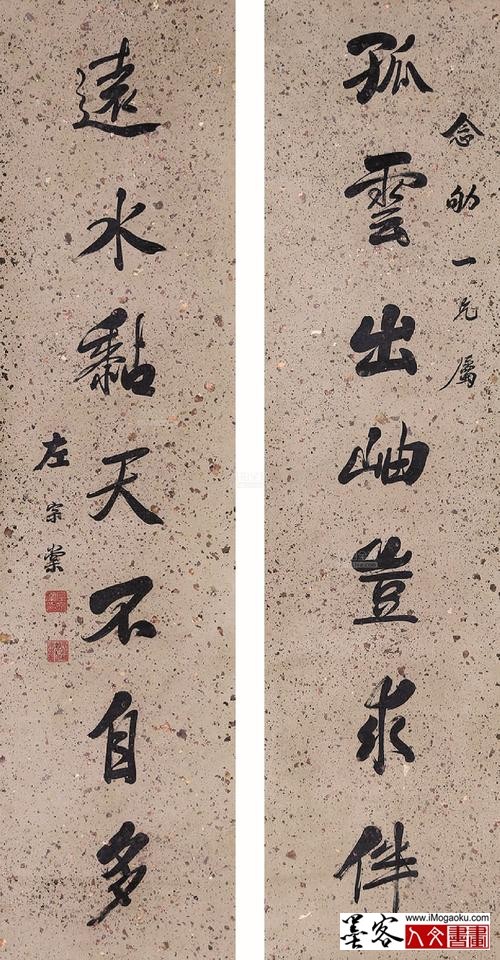 念劬一兄属
孤雲出岫豈求伴
遠水黏天不自多
左宗棠
www.iMogaoku.com
墨客
人文書畫